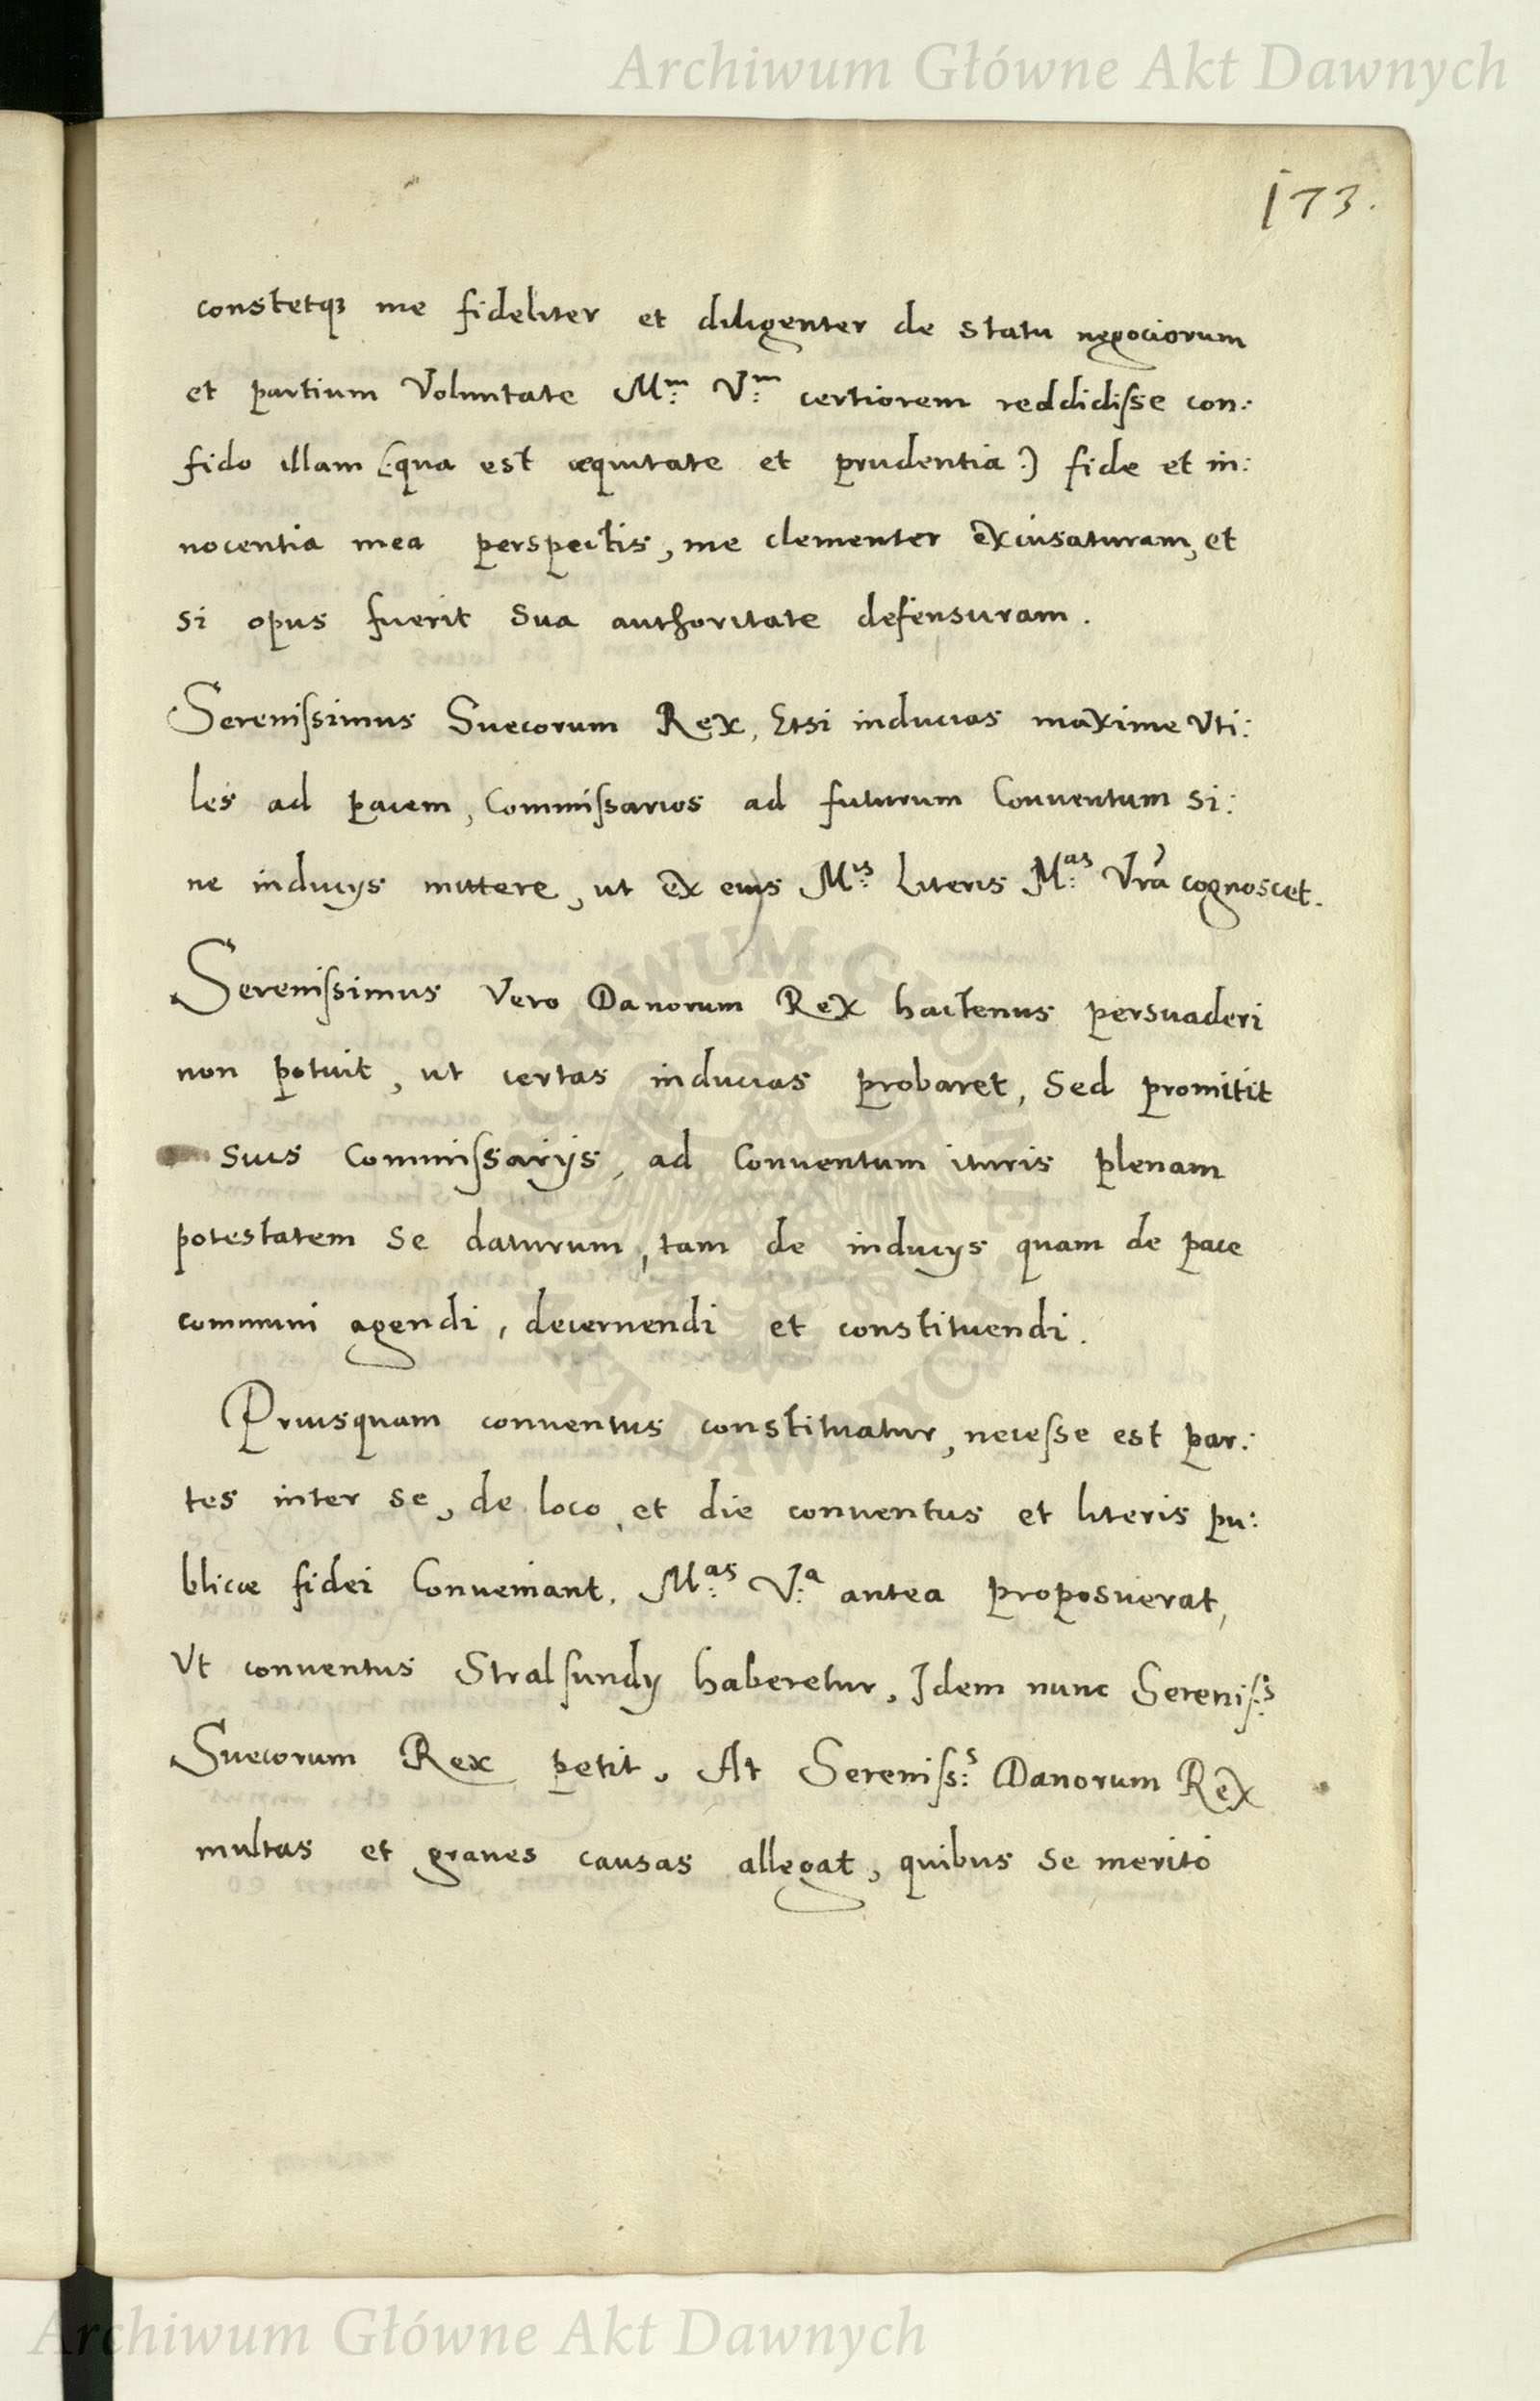 Archiwum Główne Akt Dawnych
173.
constetqꝫ me fideliter et diligenter de statu negociorum
et partium Voluntate M:ᵐ V:ᵐ certiorem reddidiſse con:
fido illam (:qua est æquitate et prudentia:) fide et in:
nocentia mea perspectis, me clementer excusaturam, et
si opus fuerit sua authoritate defensuram.
Sereniſsimus Suecorum Rex, Etsi inducias maxime Vti:
les ad pacem, Commiſsarios ad futurum Conuentum si:
ne inducijs mittere, ut ex eius M:ᵗⁱˢ Literis M:ᵃˢ Vrã cognoscet.
Sereniſsimus Vero Danorum Rex hactenus persuaderi
non potuit, ut certas inducias probaret, sed promitit
suis Commiſsarijs, ad Conuentum ituris plenam
potestatem se daturum, tam de inducijs quam de pace
communi agendi, decernendi et constituendi.
Priusquam conuentus constituatur, neceſse est par:
tes inter se, de loco, et die conuentus et literis pu:
blicæ fidei Conueniant. M:ᵃˢ V:ᵃ antea proposuerat,
Vt conuentus Stralſundij haberetur, Idem nunc Sereniſ:ˢ
Suecorum Rex petit. At Sereniſs:ˢ Danorum Rex
multas et graues causas allegat, quibus se merito
ARCHIWUM GŁÓWNE AKT DAWNYCH
Archiwum Główne Akt Dawnych